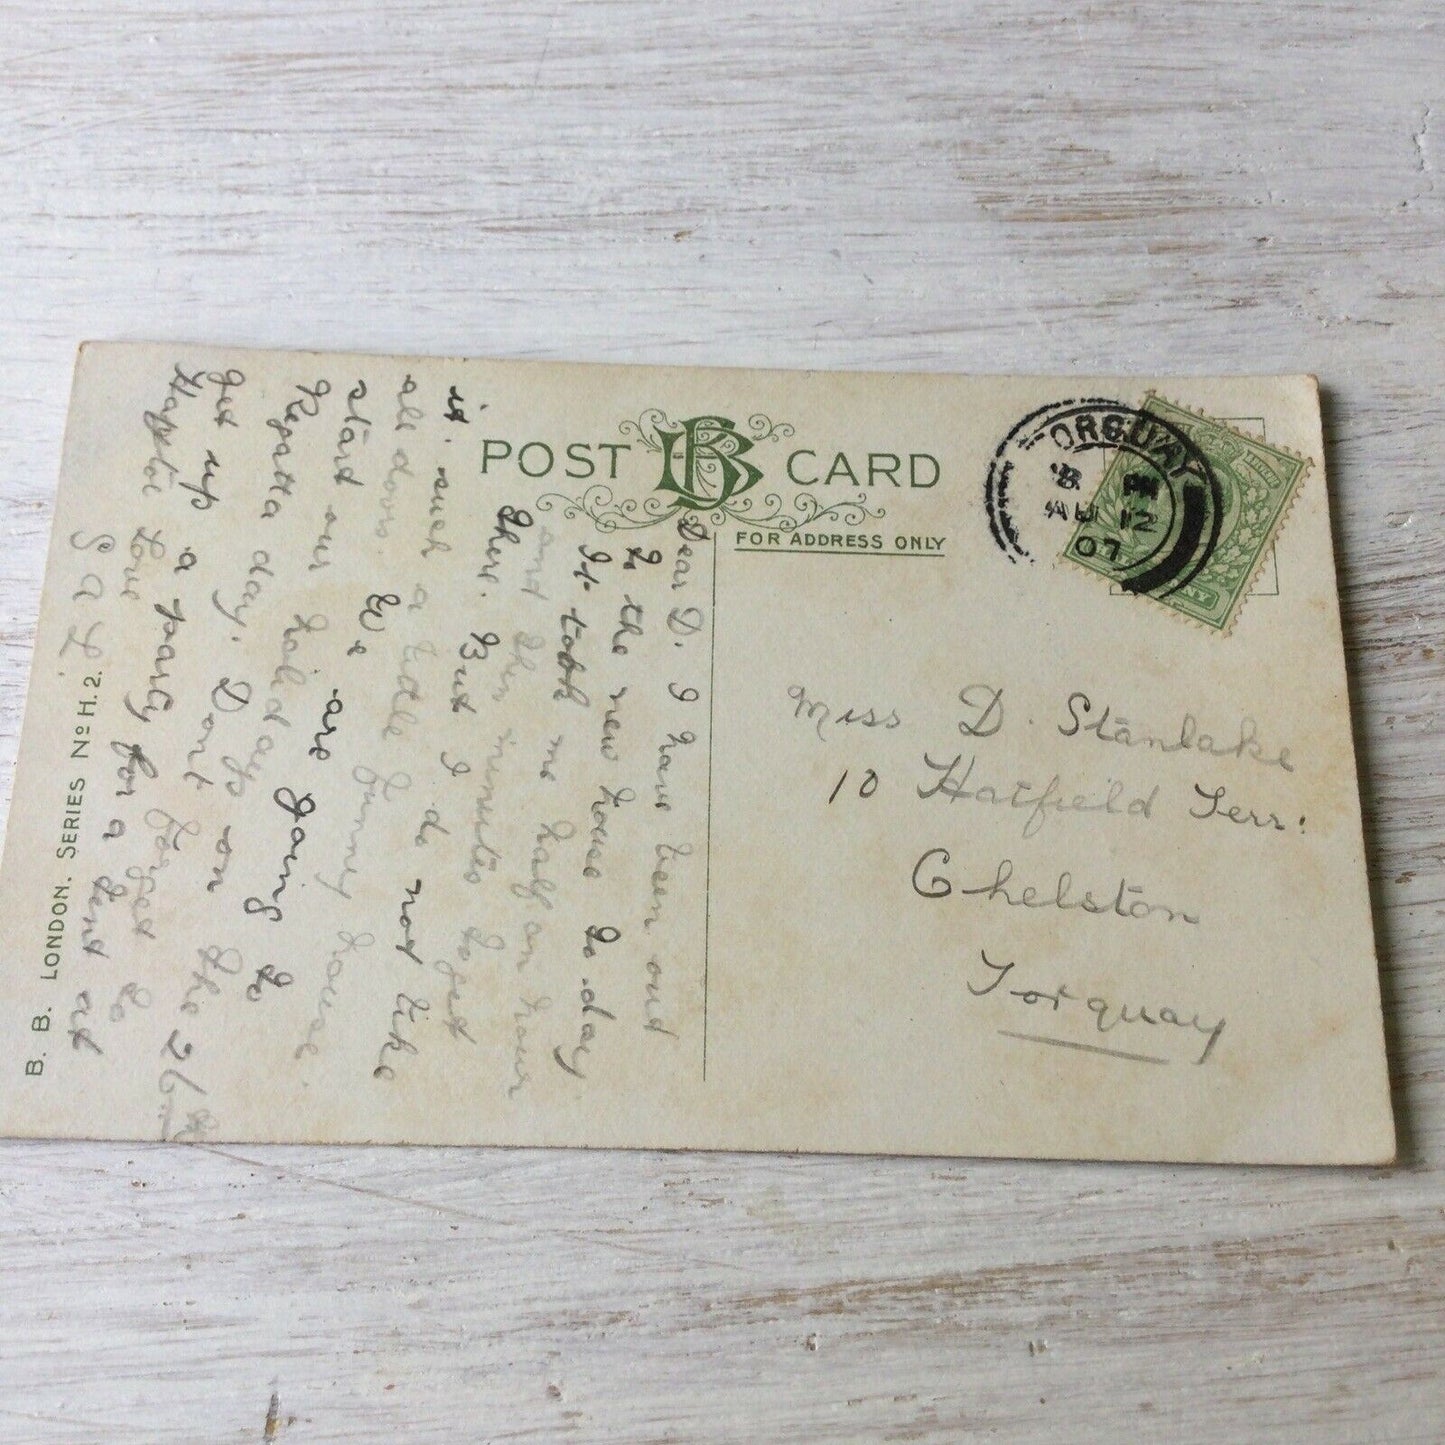 POST CARD
FOR ADDRESS ONLY
TORQUAY
8 PM
AU 12
07
Miss D. Stanlake
10 Hatfield Terr:
Chelston
Torquay
Dear D. I have been out
to the new house to day
It took me half an hour
and ten minutes to get
there. But I do not like
it. such a little funney house
all doors. We are going to
start our holidays on the 26th
Regatta day. Dont forget to
get up a party for a tent at
Love
B. B. LONDON. SERIES No H.2.